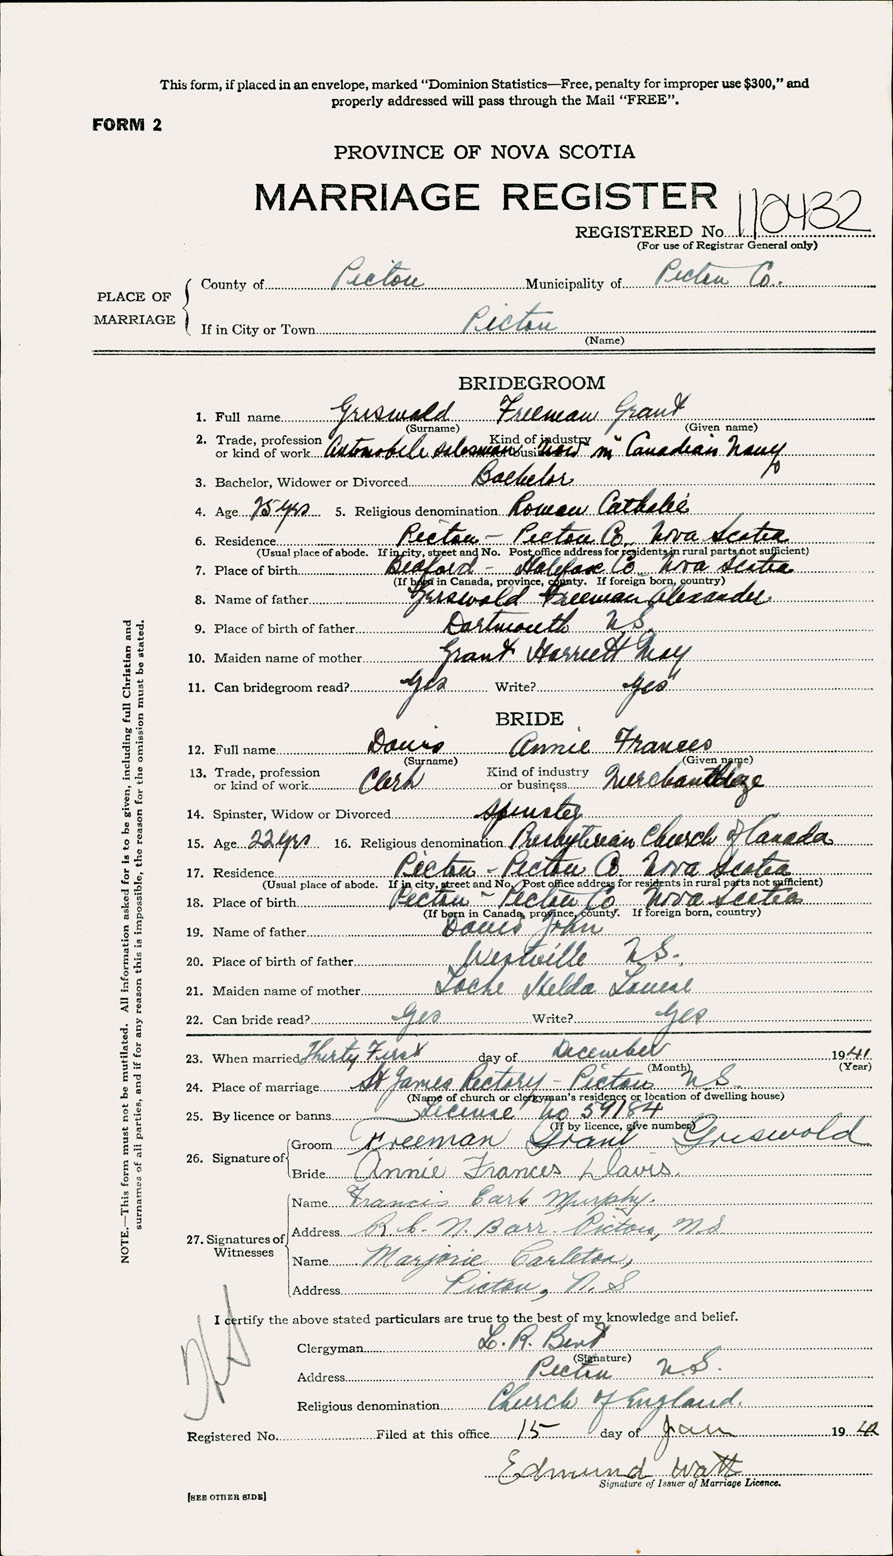 This form, if placed in an envelope, marked “Dominion Statistics—Free, penalty for improper use $300,” and
properly addressed will pass through the Mail “FREE”.
FORM 2
PROVINCE OF NOVA SCOTIA
MARRIAGE REGISTER
REGISTERED No. 110432
(For use of Registrar General only)
PLACE OF MARRIAGE
County of Pictou Municipality of Pictou Co.
If in City or Town Pictou
(Name)
BRIDEGROOM
1. Full name Griswald Freeman Grant
(Surname) (Given name)
2. Trade, profession or kind of work Automobile salesman Kind of industry or business now in Canadian Navy
3. Bachelor, Widower or Divorced Bachelor
4. Age 25 yrs 5. Religious denomination Roman Catholic
6. Residence Pictou - Pictou Co. Nova Scotia
(Usual place of abode. If in city, street and No. Post office address for residents in rural parts not sufficient)
7. Place of birth Bedford - Halifax Co. Nova Scotia
(If born in Canada, province, county. If foreign born, country)
8. Name of father Griswold Freeman Alexander
9. Place of birth of father Dartmouth N.S.
10. Maiden name of mother Grant Harriett May
11. Can bridegroom read? Yes Write? Yes
BRIDE
12. Full name Davis Annie Frances
(Surname) (Given name)
13. Trade, profession or kind of work Clerk Kind of industry or business
14. Spinster, Widow or Divorced Spinster
15. Age 22 yrs 16. Religious denomination Presbyterian Church of Canada
17. Residence Pictou - Pictou Co. Nova Scotia
(Usual place of abode. If in city, street and No. Post office address for residents in rural parts not sufficient)
18. Place of birth Pictou - Pictou Co Nova Scotia
(If born in Canada, province, county. If foreign born, country)
19. Name of father Davis John
20. Place of birth of father Westville N.S.
21. Maiden name of mother Louise
22. Can bride read? Yes Write? Yes
23. When married Thirty First day of December 1941
(Month) (Year)
24. Place of marriage St James Rectory - Pictou N.S.
(Name of church or clergyman's residence or location of dwelling house)
25. By licence or banns License No 59184
(If by licence, give number)
26. Signature of
Groom Freeman Grant Griswold
Bride Annie Frances Davis.
27. Signatures of Witnesses
Name Francis Earl Murphy.
Address R.C.N. Barr. Pictou, N.S
Name Marjorie Carleton,
Address Pictou, N.S
I certify the above stated particulars are true to the best of my knowledge and belief.
Clergyman L. R. Bent
(Signature)
Address Pictou N.S.
Religious denomination Church of England.
Registered No. Filed at this office 15 day of Jan 1942
Edmund Watt
Signature of Issuer of Marriage Licence.
[SEE OTHER SIDE]
NOTE.—This form must not be mutilated. All information asked for is to be given, including full Christian and
surnames of all parties, and if for any reason this is impossible, the reason for the omission must be stated.